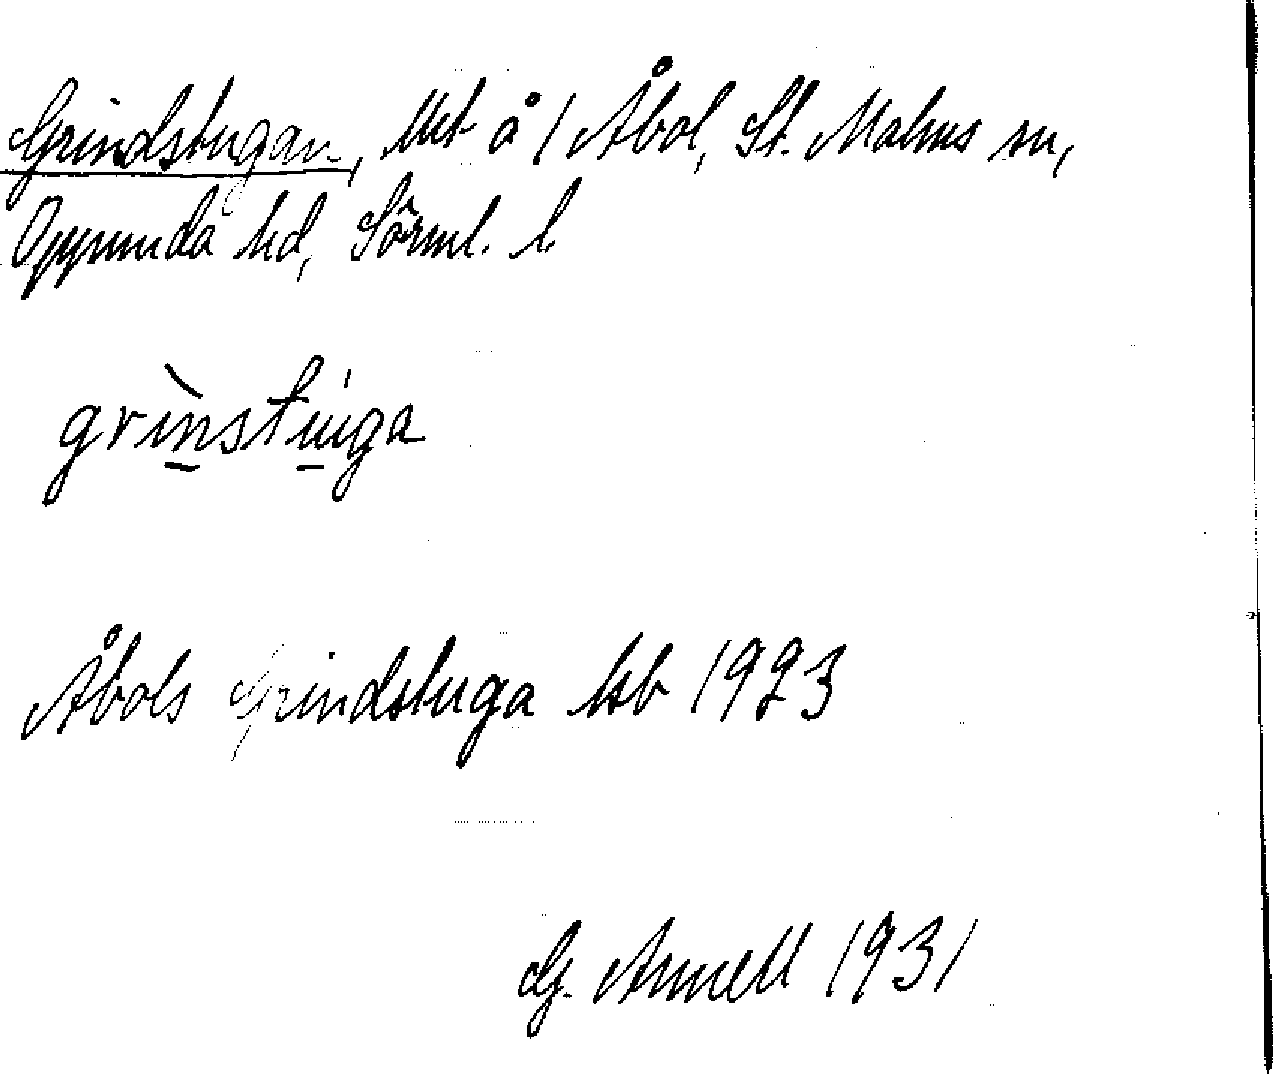 Grindstugan, Uet å / Åbol, St. Malms sn,
Oppunda hd, Sörml. l.
grìnstuga
Åbols Grindstuga ksb 1923
G. Arnell 1931